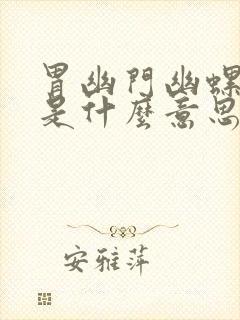 胃幽門幽螺
是什麼意思
安雅萍